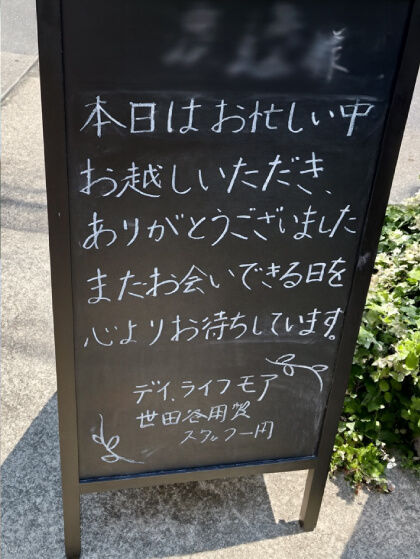 様
本日はお忙しい中
お越しいただき、
ありがとうございました
またお会いできる日を
心よりお待ちしています。
デイ.ライフモア
世田谷用賀
スタッフ一同